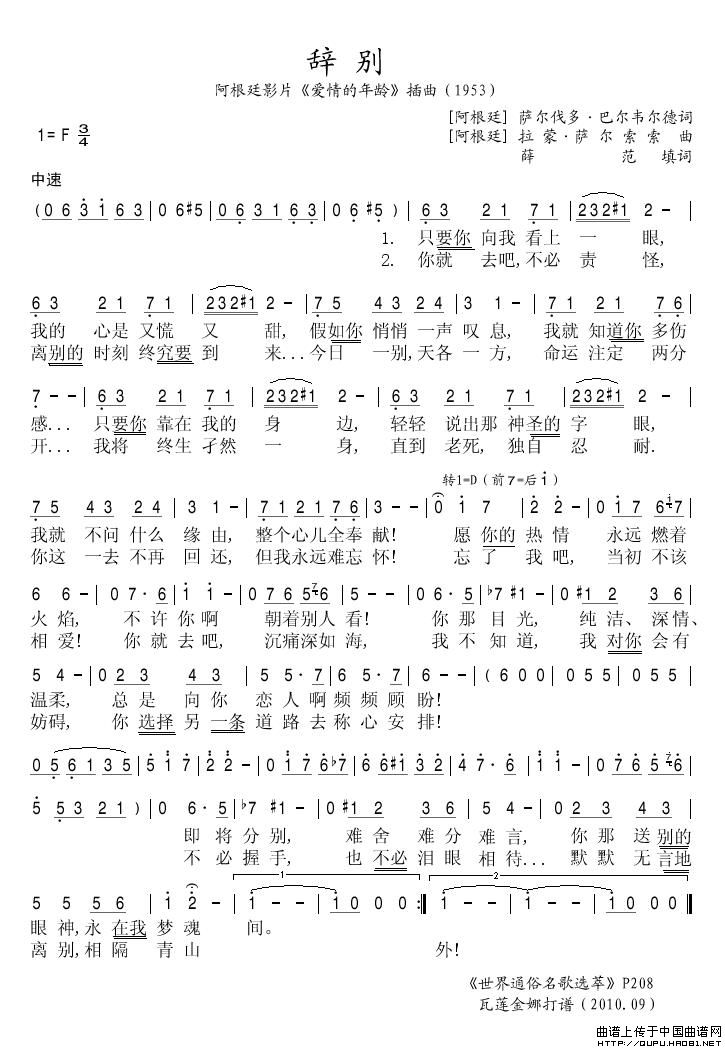 辞别
阿根廷影片《爱情的年龄》插曲（1953）
[阿根廷] 萨尔伐多·巴尔韦尔德词
1=F 3/4
[阿根廷] 拉蒙·萨尔索索 曲
薛范 填词
中速
(0 6 3 i 6 3 | 0 6 #5 | 0 6 3 1 6 3 | 0 6 #5 ) | 6 3 2 1 7 1 | 2 3 2 #1 2 - |
1. 只要你 向我 看上 一 眼,
2. 你就 去吧,不必 责 怪,
6 3 2 1 7 1 | 2 3 2 #1 2 - | 7 5 4 3 2 4 | 3 1 - | 7 1 2 1 7 6 |
我的 心是 又慌 又 甜, 假如你 悄悄 一声 叹 息, 我就 知道你 多伤
离别的 时刻 终究要 到 来...今日 一别,天各 一 方, 命运 注定 两分
7 - - | 6 3 2 1 7 1 | 2 3 2 #1 2 - | 6 3 2 1 7 1 | 2 3 2 #1 2 - |
感... 只要你 靠在 我的 身 边, 轻轻 说出那 神圣的 字 眼,
开... 我将 终生 孑然 一 身, 直到 老死, 独自 忍 耐.
转1=D (前7=后i)
7 5 4 3 2 4 | 3 1 - | 7 1 2 1 7 6 | 3 - - | 0 i 7 | 2 2 - | 0 i 7 6 7 |
我就 不问 什么 缘 由, 整个 心儿 全奉 献! 愿 你的 热 情 永远 燃着
你这 一去 不再 回 还, 但我 永远 难忘 怀! 忘 了 我 吧, 当初 不该
6 6 - | 0 7· 6 | i i - | 0 7 6 5 6 | 5 5 - | 0 6· 5 | b7 #1 - | 0 #1 2 3 6 |
火 焰, 不 许 你 啊 朝着 别人 看! 你 那 目 光, 纯 洁、深 情、
相 爱! 你 就 去 吧, 沉痛 深如 海, 我 不 知 道, 我 对你 会 有
5 4 - | 0 2 3 4 3 | 5 5· 7 | 6 5· 7 | 6 - - | (6 0 0 | 0 5 5 | 0 5 5 | 0 5 5 |
温 柔, 总 是 向 你 恋 人 啊 频 频 顾 盼!
妨 碍, 你 选择 另 一条 道 路 去 称 心 安 排!
0 5 6 1 3 5 | 5 i 7 | 2 2 - | 0 i 7 6 b7 | 6 #6 #i 3 2 | 4 7· 6 | i i - | 0 7 6 5 6 |
5 5 3 2 1 ) | 0 6· 5 | b7 #1 - | 0 #1 2 3 6 | 5 4 - | 0 2 3 4 3 |
即 将 分 别, 难 舍 难 分 难 言, 你 那 送 别的
不 必 握 手, 也 不必 泪 眼 相 待... 默 默 无 言地
1 2
5 5 5 6 | i 2 - | i - - | i 0 0 0 :| i - - | i 0 0 0 |
眼 神,永 在我 梦 魂 间。
离 别,相 隔 青 山 外!
《世界通俗名歌选萃》P208
瓦莲金娜打谱（2010.09）
曲谱上传于中国曲谱网
HTTP://QUPU.HAO81.NET